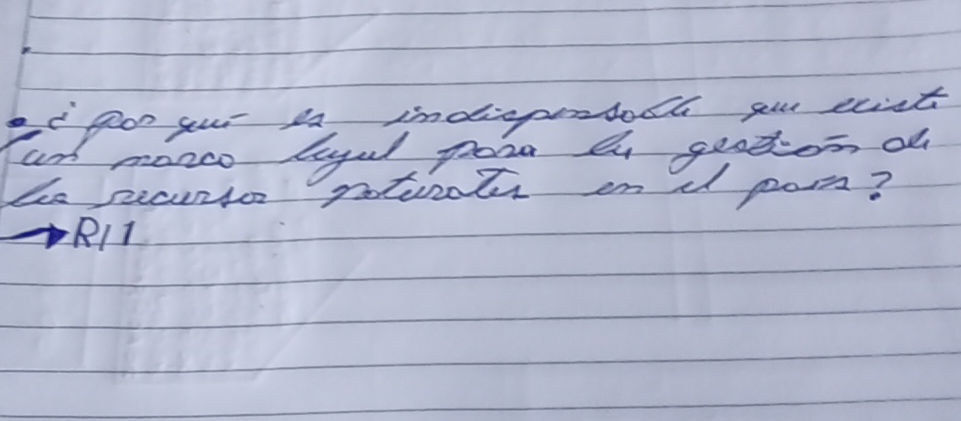 • ¿ por qué es indispensable que existe
un marco legal para la gestión de
los recursos naturales en el país?
→ R/1